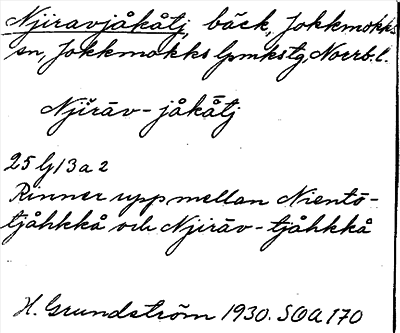 Njiravjåkåtj, bäck, Jokkmokks
sn, Jokkmokks lpmkstg, Norrb. l.
Njirāv-jåkåtj
25 G/3 a 2
Rinner upp mellan Nientō-
tjåhkkå och Njirāv-tjåhkkå
H. Grundström 1930. SOA 170